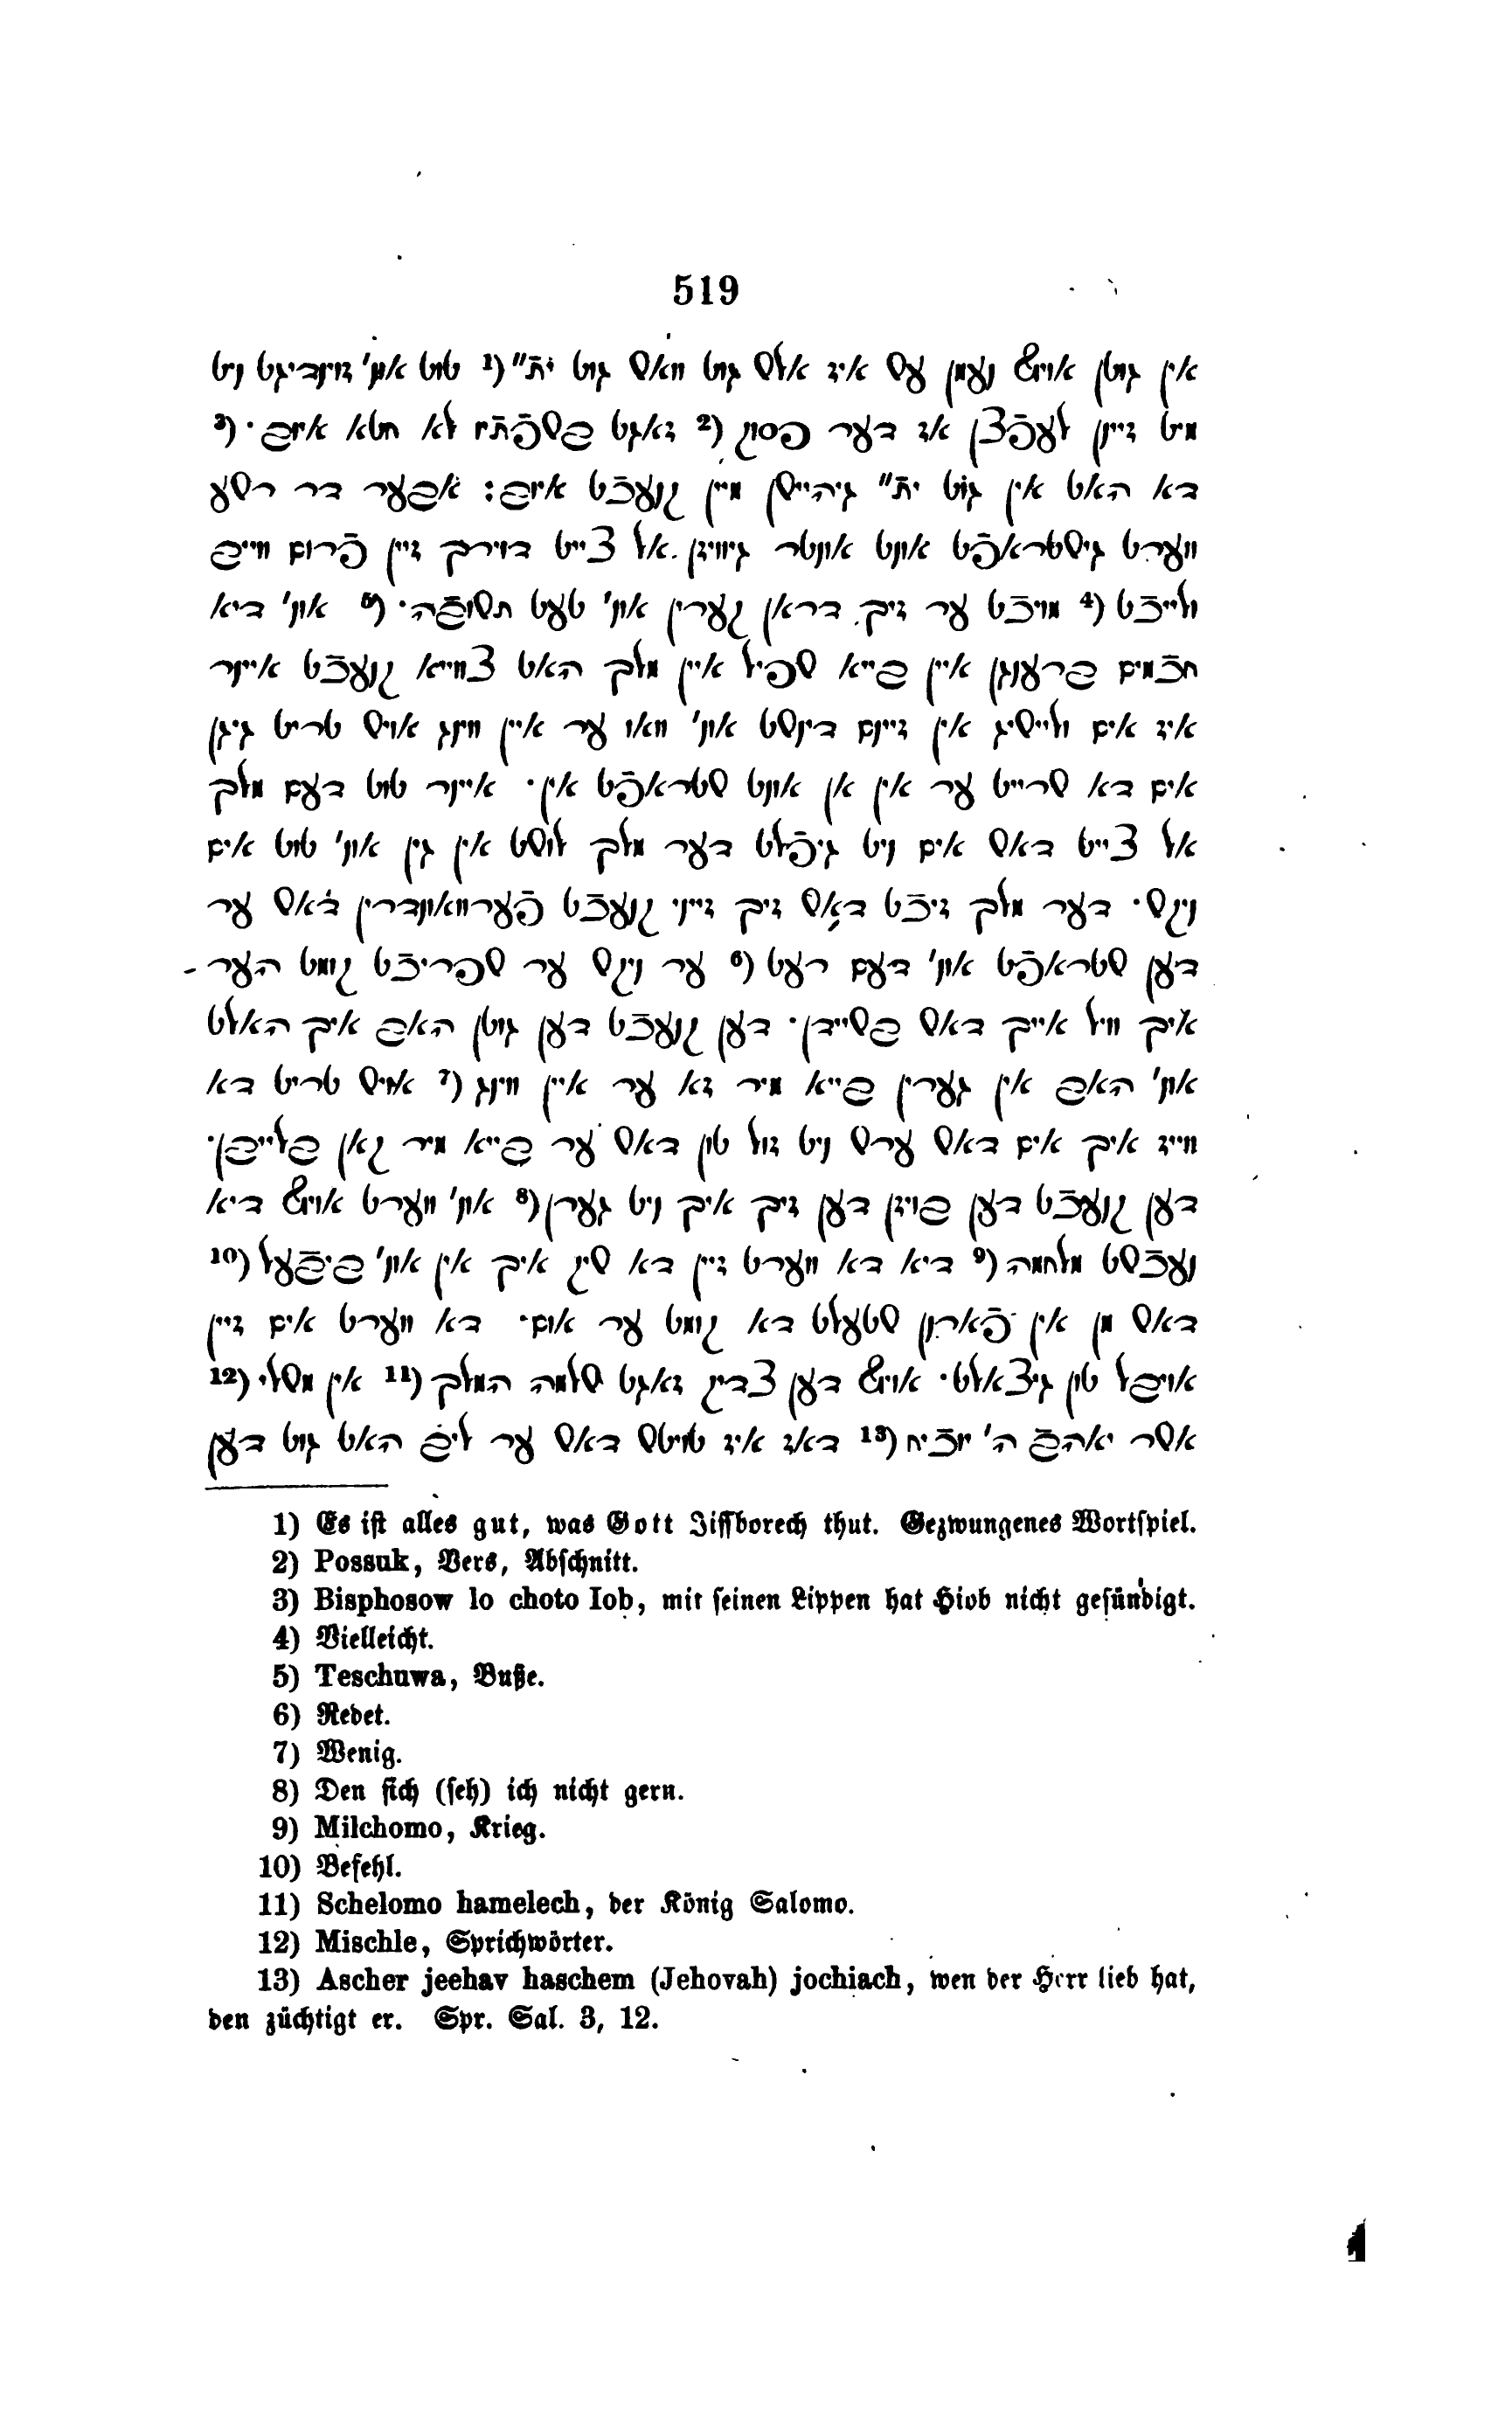 519
אין גוטן אויף נעמן עש איז אלש גוט וואש גוט ית״ (1 טוט אונ' זוינדיגט ניט
מיט זיינן לעפֿצן אז דער פסוק (2 זאגט בשפֿתֿיו לא חטא איוב · (3
דא האט אין גוט ית״ גיהיישן מיין קנעכֿט איוב : אבער דר רשע
ווערט גישטראפֿט אונט אונטר גיוויזן אל צייט דוירך זיין פֿרום ווייב
ולייכֿט (4 מויכֿט ער זיך דראן קערין אונ' טעט תשובֿה · (5 אונ' דיא
חכֿמים ברענגן איין בייא שפיל איין מלך האט צווייא קנעכֿט איינר
איז אים ולייסיג אין זיינם דינשט אונ' וואו ער איין ווינג אויש טריט גיגן
אים דא שרייט ער אין אן אונט שטראפֿט אין · איינר טוט דעם מלך
אל צייט דאש אים ניט גיפֿלט דער מלך לושט אין גין אונ' טוט אים
ניקש · דער מלך זיכֿט דאש זיך זייני קנעכֿט פֿערוואונדרין דאש ער
דען שטראפֿט אונ' דעם רעט (6 ער ניקש ער שפריכֿט קומט הער
איך וויל אייך דאש בשיידן · דען קנעכֿט דען גוטן האב איך האלט
אונ' האב אין גערין בייא מיר זא ער איין ווינג (7 אויש טריט דא
ווייז איך אים דאש ערש ניט זול טון דאש ער בייא מיר קאן בלייבן ·
דען קנעכֿט דען בויזן דען זיך איך ניט גערן (8 אונ' ווערט אויף דיא
נעכֿשט מלחמה (9 דיא דא ווערט זיין דא שיק איך אין אונ' ביפֿעל (10
דאש מן אין פֿארון שטעלט דא קומט ער אום · דא ווערט אים זיין
אויבל טון גיצאלט · אויף דען צדיק זאגט שלמה המלך (11 אין משלי (12
אשר יאהבֿ ה' יוכֿיח (13 דאז איז טויטש דאש ער ליב האט גוט דען
1) Es ist alles gut, was Gott Jissborech thut. Gezwungenes Wortspiel.
2) Possuk, Vers, Abschnitt.
3) Bisphosow lo choto Iob, mit seinen Lippen hat Hiob nicht gesündigt.
4) Vielleicht.
5) Teschuwa, Buße.
6) Redet.
7) Wenig.
8) Den sich (seh) ich nicht gern.
9) Milchomo, Krieg.
10) Befehl.
11) Schelomo hamelech, der König Salomo.
12) Mischle, Sprichwörter.
13) Ascher jeehav haschem (Jehovah) jochiach, wen der Herr lieb hat,
den züchtigt er. Spr. Sal. 3, 12.